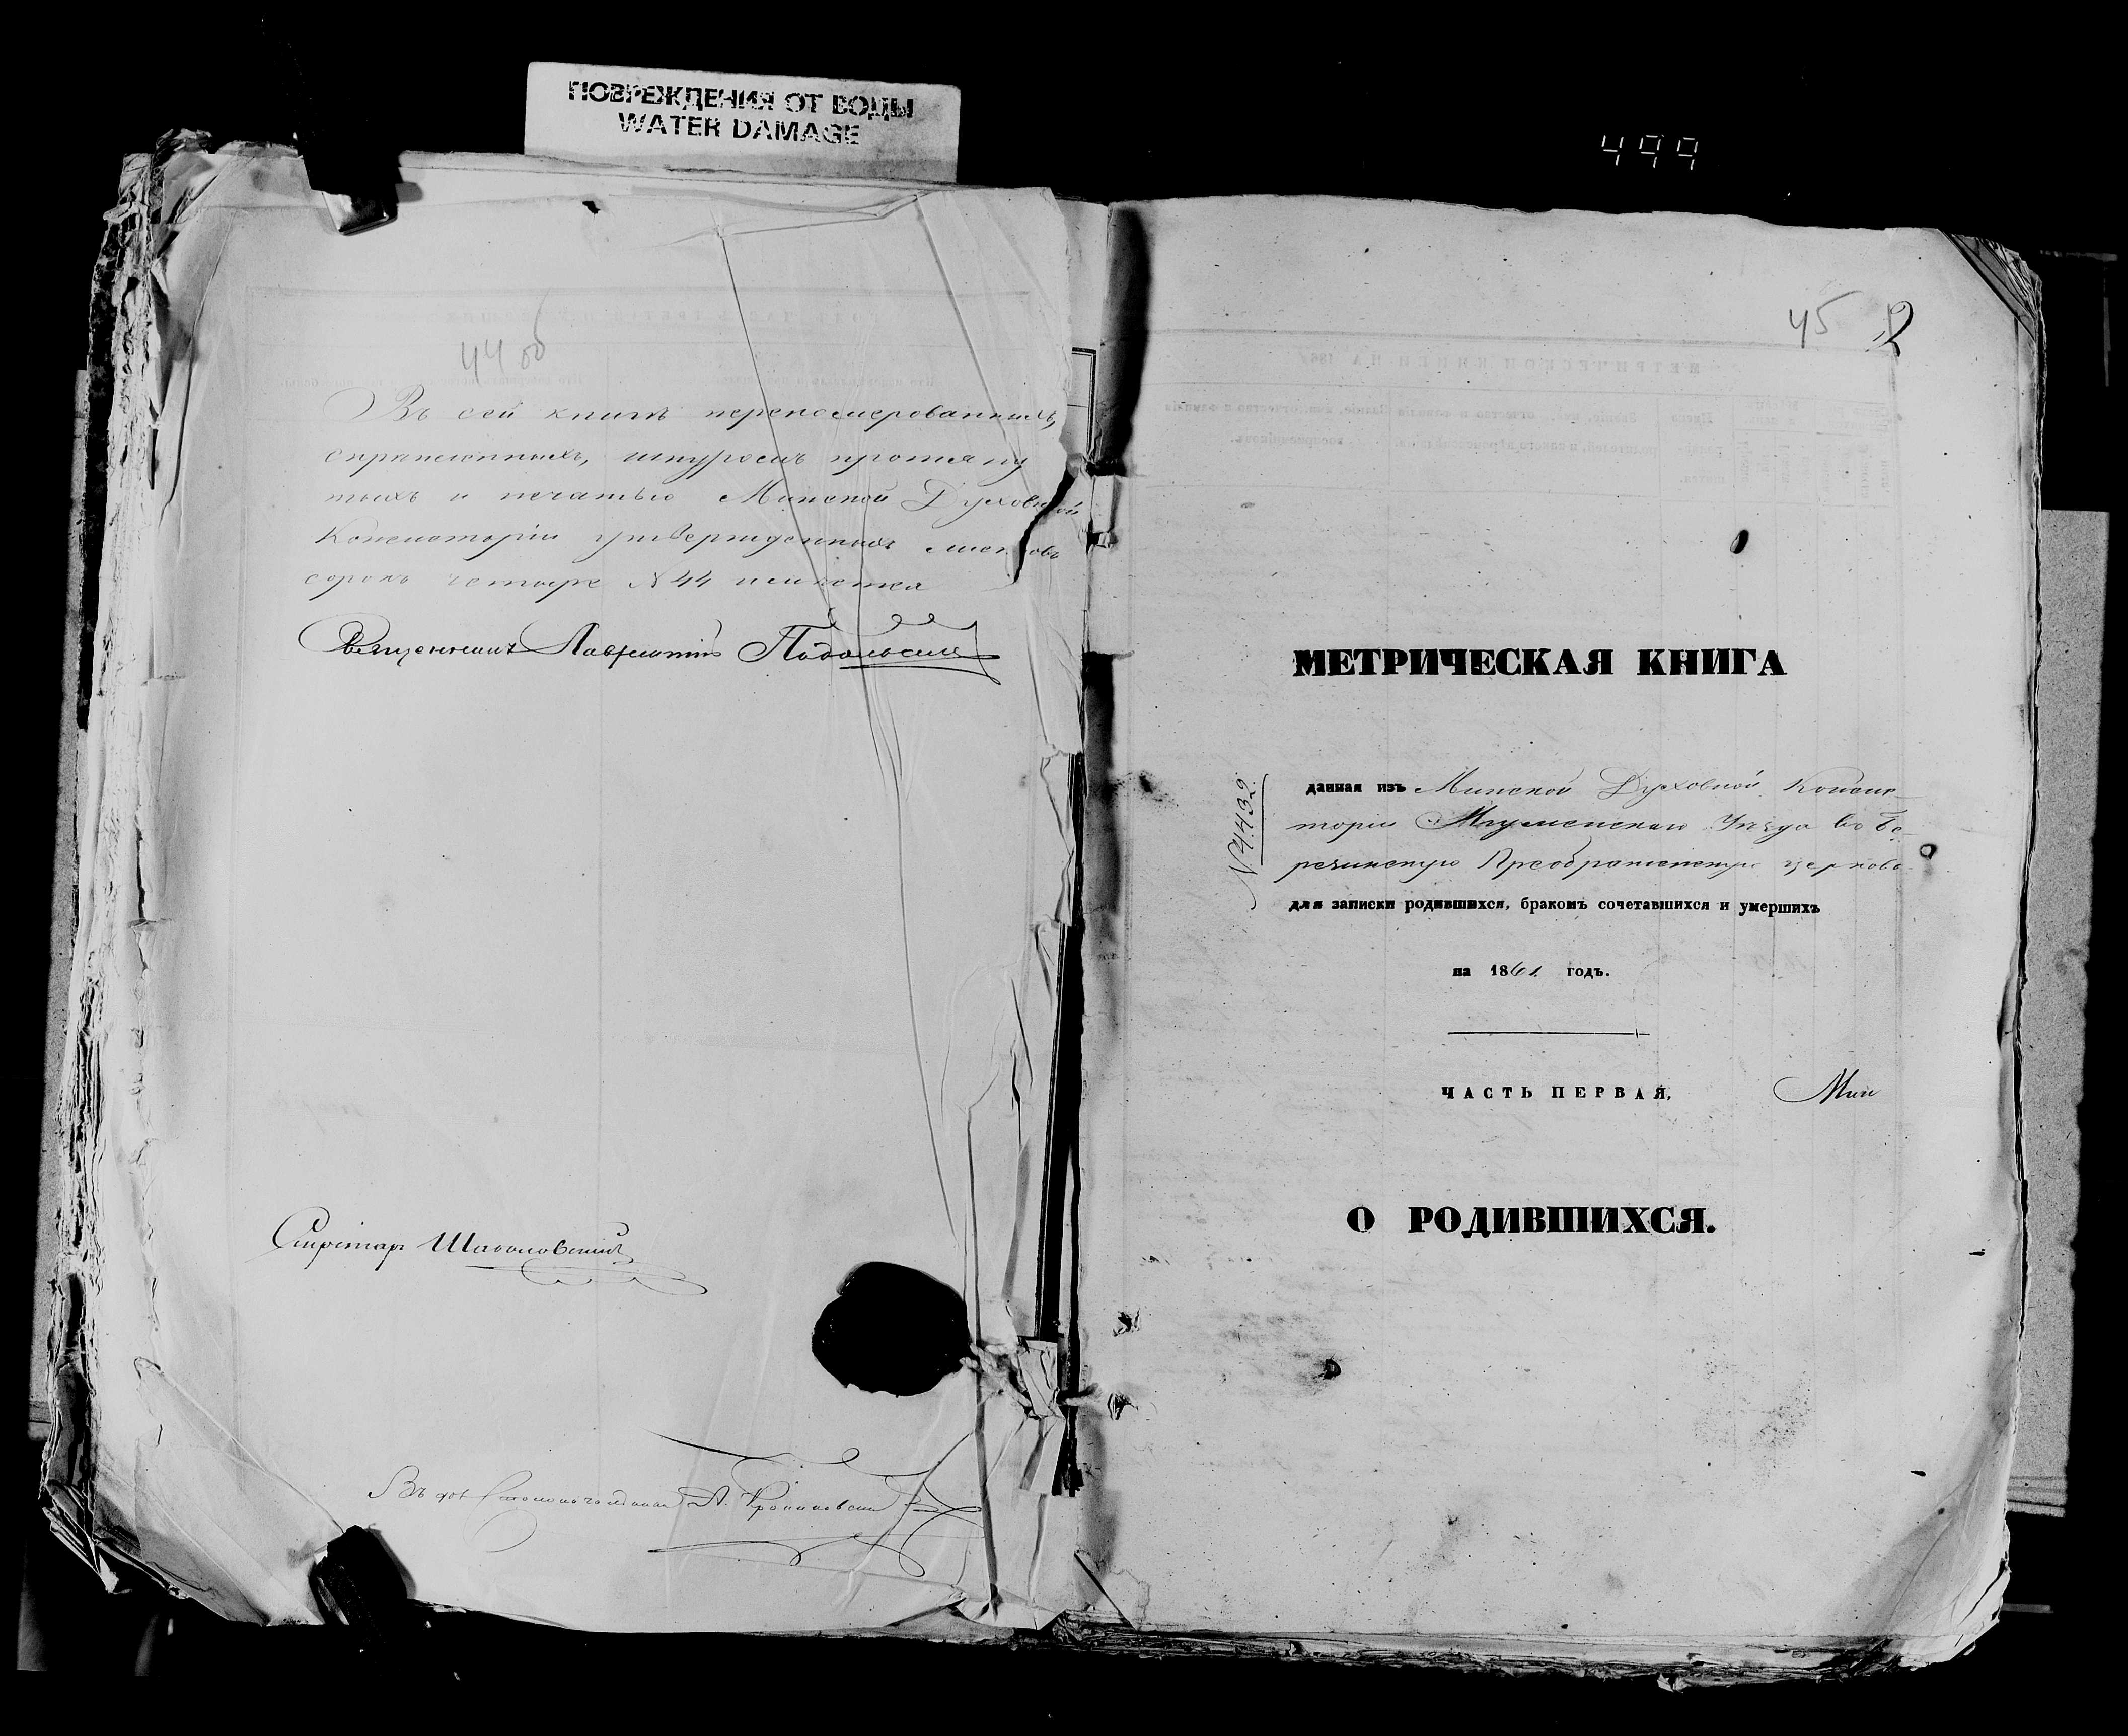 ПОВРЕЖДЕНИЯ ОТ ВОДЫ
WATER DAMAGE
499
44 об
Въ сей книгѣ переномерованныхъ,
скрепленныхъ, шнуромъ протяну
тыхъ и печатью Минской Духовной
Консисторіи утвержденныхъ листовъ
сорокъ четыре N 44 имѣется
Священникъ Лаврентій Подольскій
Секретарь
Въ дол. Столоначальника А.
45 2
МЕТРИЧЕСКАЯ КНИГА
N 4432
данная изъ Минской Духовной Консис-
торіи Игуменскаго Уѣзда въ Бе-
резинскую Преображенскую церковь
для записки родившихся, бракомъ сочетавшихся и умершихъ
на 1861 годъ.
ЧАСТЬ ПЕРВАЯ,
Мин
О РОДИВШИХСЯ.